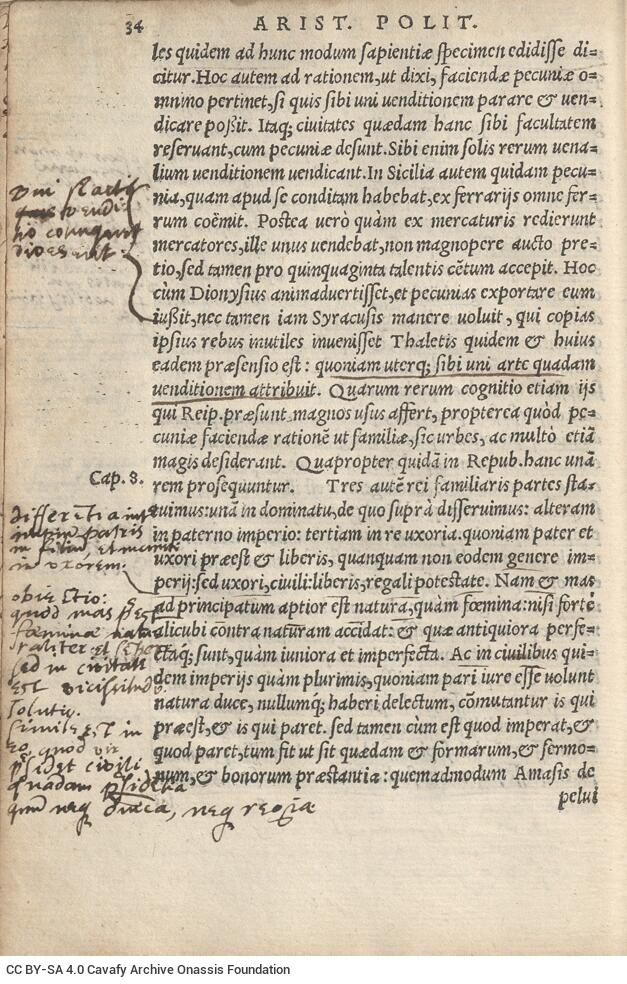 34 ARIST. POLIT.
les quidem ad hunc modum sapientiæ specimen edidisse di=
citur. Hoc autem ad rationem, ut dixi, faciendæ pecuniæ o=
mnino pertinet, si quis sibi uni uenditionem parare & uen=
dicare poßit. Itaq; ciuitates quædam hanc sibi facultatem
reseruant, cum pecuniæ desunt. Sibi enim solis rerum uena=
lium uenditionem uendicant. In Sicilia autem quidam pecu=
nia, quam apud se conditam habebat, ex ferrarijs omne fer=
rum coëmit. Postea uerò quàm ex mercaturis redierunt
mercatores, ille unus uendebat, non magnopere aucto pre=
tio, sed tamen pro quinquaginta talentis cẽtum accepit. Hoc
cùm Dionysius animaduertisset, et pecunias exportare eum
iußit, nec tamen iam Syracusis manere uoluit, qui copias
ipsius rebus inutiles inuenisset Thaletis quidem & huius
eadem præsensio est: quoniam uterq; sibi uni arte quadam
uenditionem attribuit. Quarum rerum cognitio etiam ijs
qui Reip. præsunt, magnos usus affert, propterea quòd pe=
cuniæ faciendæ rationẽ ut familiæ, sic urbes, ac multò etiã
magis desiderant. Quapropter quidã in Repub. hanc unã
Cap. 8. rem prosequuntur. Tres autẽ rei familiaris partes sta=
tuimus: unã in dominatu, de quo suprà disseruimus: alteram
in paterno imperio: tertiam in re uxoria. quoniam pater et
uxori præest & liberis, quanquam non eodem genere im=
perij: sed uxori, ciuili: liberis, regali potestate. Nam & mas
ad principatum aptior est natura, quàm fœmina: nisi fortè
alicubi contra naturam accidat: & quæ antiquiora perfe=
ctaq; sunt, quàm iuniora et imperfecta. Ac in ciuilibus qui=
dem imperijs quàm plurimis, quoniam pari iure esse uolunt
natura duce, nullumq; haberi delectum, cõmutantur is qui
præest, & is qui paret. sed tamen cùm est quod imperat, &
quod paret, tum fit ut sit quædam & formarum, & sermo=
num, & bonorum præstantia: quemadmodum Amasis de
pelui
differẽtia
in uxorem.
obiectio:
quod mas
sed in
est
solutio.
simile est in
eo, quod vir
civili
quadam
neq neq regia
CC BY-SA 4.0 Cavafy Archive Onassis Foundation